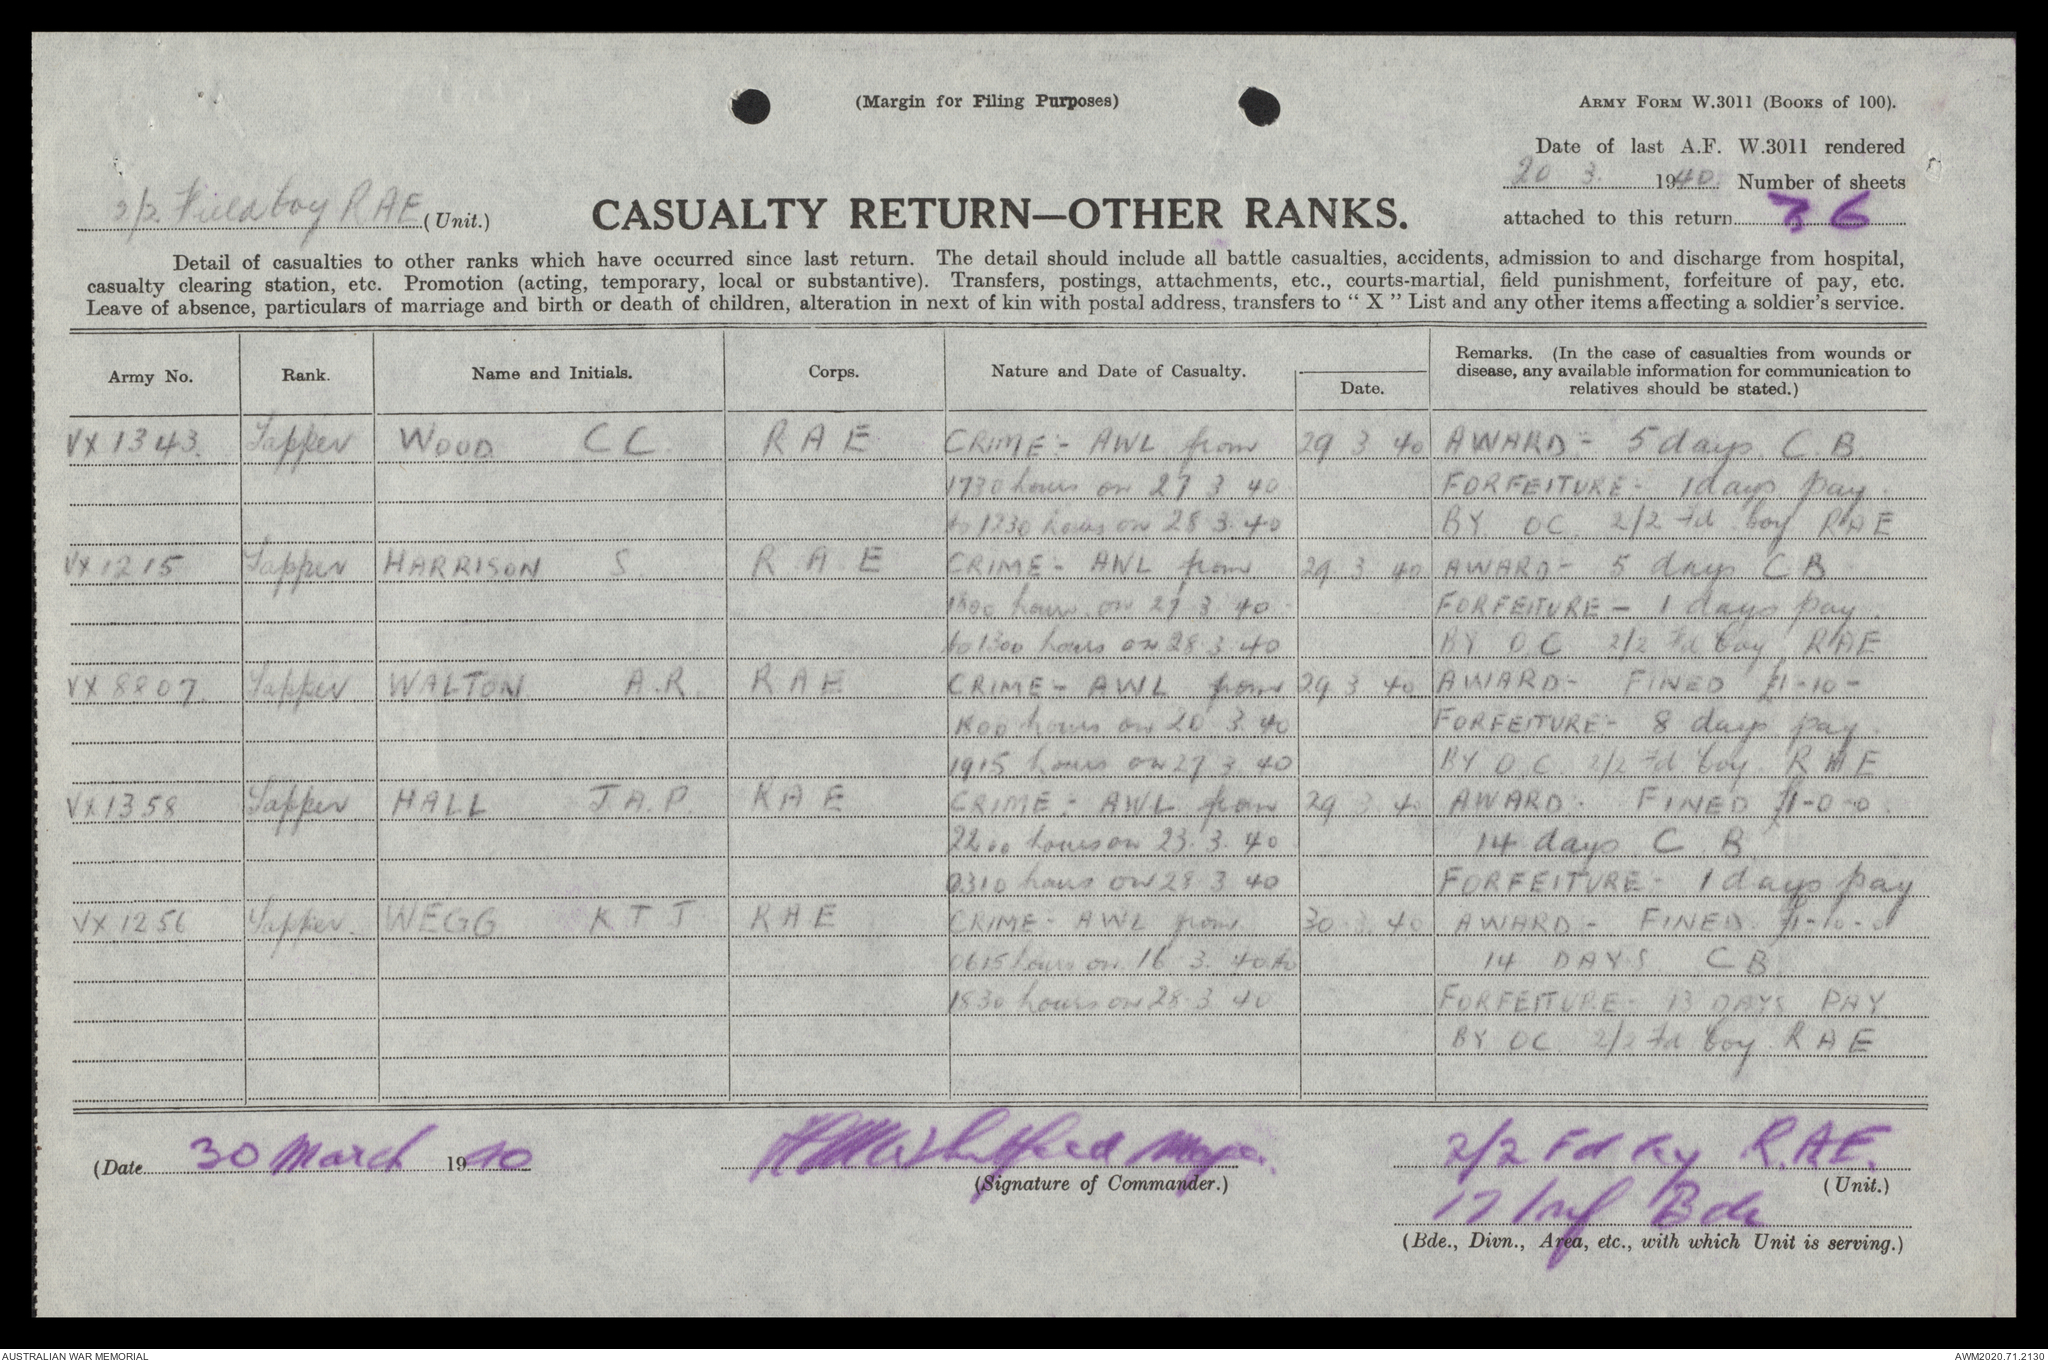 (Margin for Filing Purposes)
ARMY FORM W.3011 (Books of 100).
Date of last A.F. W.3011 rendered
20 3. 1940. Number of sheets
attached to this return 6
2/2 Field Coy RAE (Unit.)
CASUALTY RETURN—OTHER RANKS.
Detail of casualties to other ranks which have occurred since last return. The detail should include all battle casualties, accidents, admission to and discharge from hospital,
casualty clearing station, etc. Promotion (acting, temporary, local or substantive). Transfers, postings, attachments, etc., courts-martial, field punishment, forfeiture of pay, etc.
Leave of absence, particulars of marriage and birth or death of children, alteration in next of kin with postal address, transfers to " X " List and any other items affecting a soldier's service.
Army No. Rank. Name and Initials. Corps. Nature and Date of Casualty. Date. Remarks. (In the case of casualties from wounds or
disease, any available information for communication to
relatives should be stated.)
VX1343. Sapper WOOD CC. RAE CRIME:- AWL from 29 3 40 AWARD:- 5 days C.B.
1730 hours on 27 3 40 FORFEITURE- 1 days pay.
to 1230 hours on 28 3.40 BY OC. 2/2 Fd Coy RAE
VX1215 Sapper HARRISON S. RAE CRIME- AWL from 29 3 40 AWARD- 5 days CB
1800 hours on 27 3 40 FORFEITURE- 1 days pay.
to 1300 hours on 28.3.40 BY O.C 2/2 Fd Coy RAE
VX8807. Sapper WALTON A.R. RAE CRIME- AWL from 29 3 40 AWARD- FINED £1-10-
1800 hours on 20 3.40 FORFEITURE- 8 days pay.
1915 hours on 27 3.40 BY O.C. 2/2 Fd Coy. RAE
VX1358 Sapper HALL J.A.P. RAE CRIME:- AWL from 29 3 40 AWARD- FINED £1-0-0.
2200 hours on 23.3.40 14 days C.B.
0310 hours on 28 3 40 FORFEITURE- 1 days pay
VX1256 Sapper. WEGG KTJ RAE CRIME- AWL from 30.3.40 AWARD- FINED £1-10-0
0615 hours on 16 3. 40 to 14 DAYS CB.
1830 hours on 28.3 40 FORFEITURE- 13 DAYS PAY
BY OC 2/2 Fd Coy. RAE
(Date 30 March 1940
Major.
(Signature of Commander.)
2/2 Fd Coy R.A.E.
(Unit.)
17 Inf Bde
(Bde., Divn., Area, etc., with which Unit is serving.)
AUSTRALIAN WAR MEMORIAL
AWM2020.71.2130